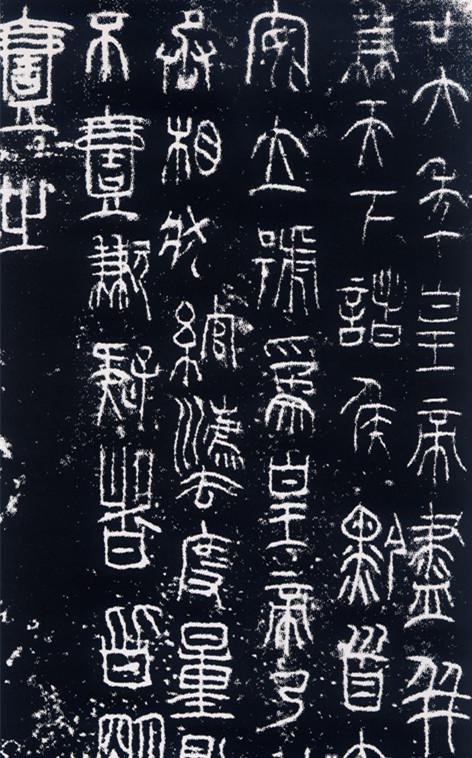 廿六年皇帝盡并
兼天下諸侯黔首大
安立號為皇帝乃
丞相狀綰灋度量則
不壹歉疑者皆明
壹之